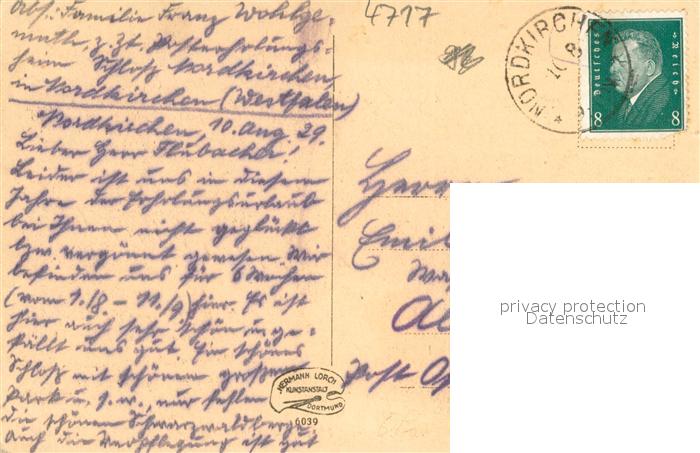 4717
Abs: Familie Franz Wohlge-
muth z. Zt. Posterholungs-
heim Schloß Nordkirchen
in Nordkirchen (Westfalen)
Nordkirchen, 10. Aug 29.
Lieber Herr Flubacher!
Leider ist uns in diesem
Jahre der Erholungsurlaub
bei Ihnen nicht geglückt
bzw. vergönnt gewesen. Wir
befinden uns für 6 Wochen
(vom 1./8 - 11./9) hier. Es ist
hier auch sehr schön u. ge-
fällt uns gut. Ein schönes
Schloß mit schönem großem
Park u. s. w., nur fehlen
die schönen Schwarzwaldberge.
Auch die Verpflegung ist gut
NORDKIRCHEN
Deutsches Reich
8 8
Herrn
Emil
Post
HERMANN LORCH
KUNSTANSTALT
DORTMUND
6039
privacy protection
Datenschutz